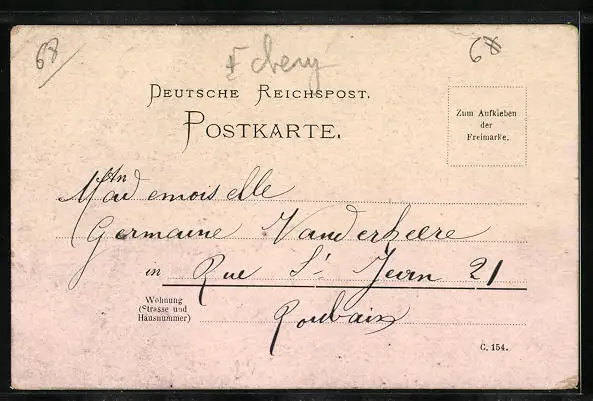 67
6
DEUTSCHE REICHSPOST.
POSTKARTE.
Zum Aufkleben
der
Freimarke.
An
Mademoiselle
Germaine Vanderheere
in Rue St Jean 21
Wohnung
(Strasse und
Hausnummer)
Roubaix
C. 154.